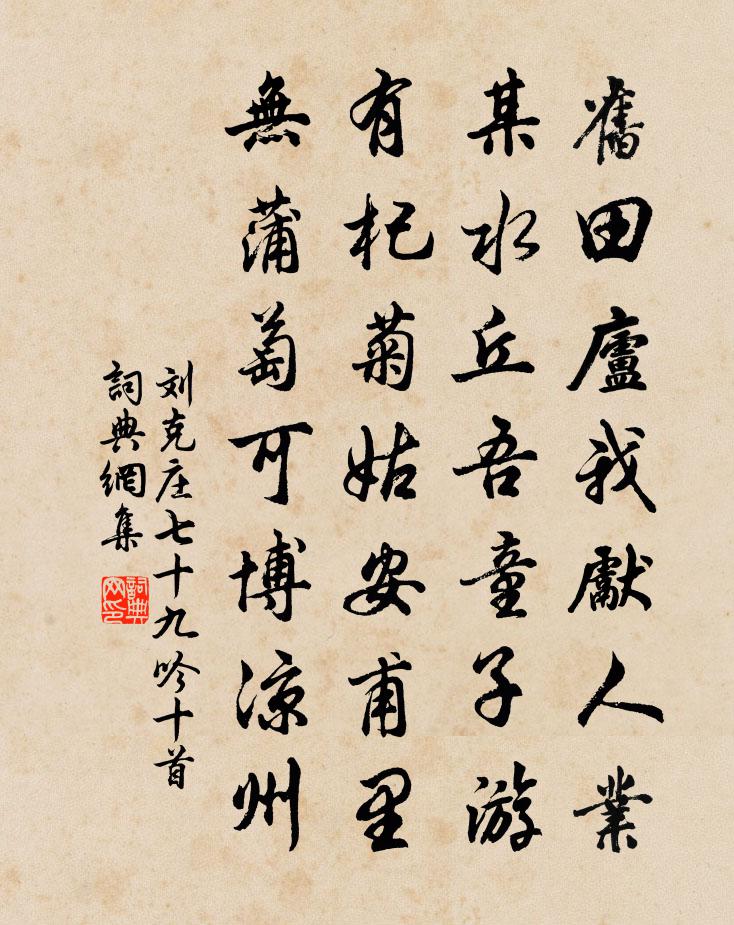 舊田廬我獻人業
某水丘吾童子游
有杞菊姑安甫里
無蒲萄可博涼州
刘克庄七十九吟十首
詞典網集
詞典
网印